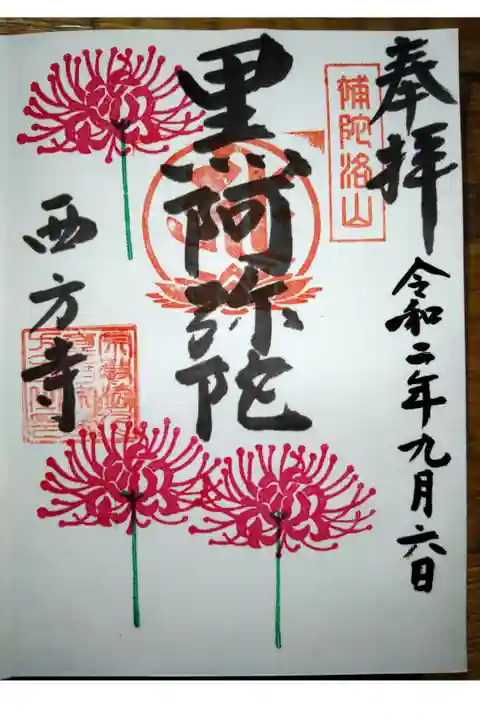 奉拝
令和二年九月六日
補陀洛山
黒阿弥陀
西方寺